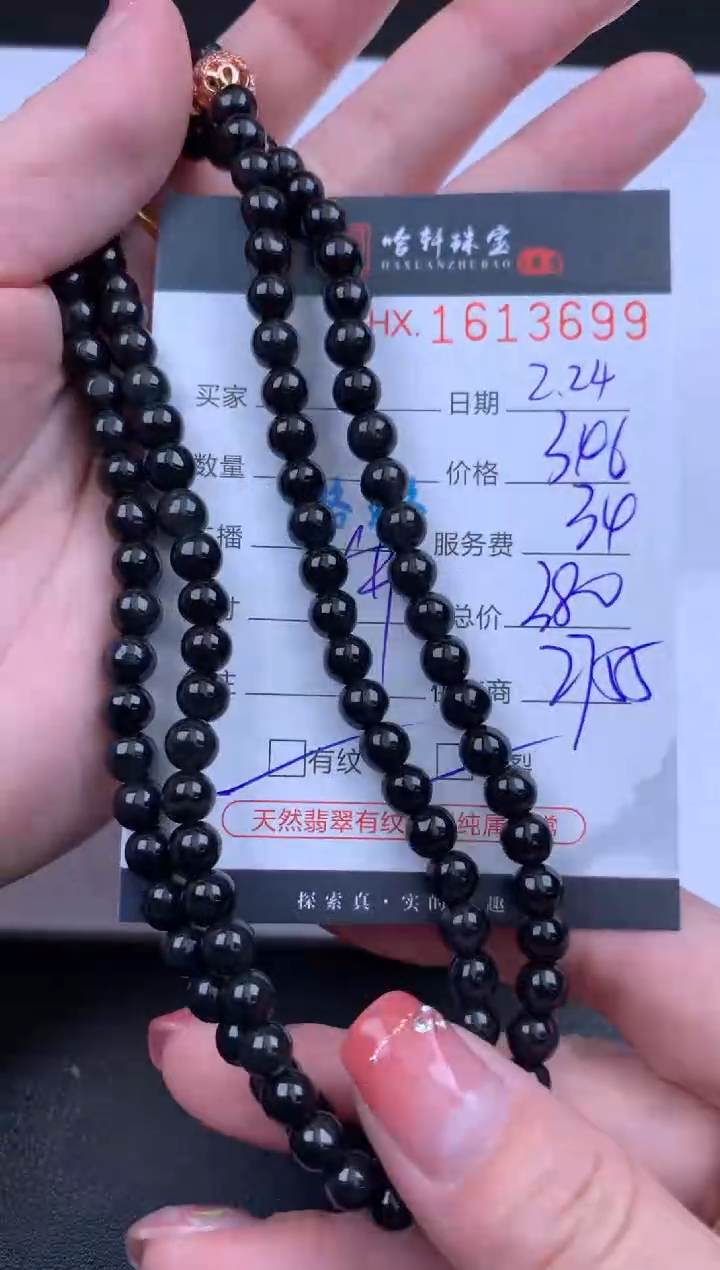 哈轩珠宝
HAXUANZHUBAO
HX.1613699
买家 日期 2.24
数量 价格 346
播 服务费 34
寸 总价 380
商
有纹 裂
天然翡翠有纹 纯属 常
探索真·实的 趣